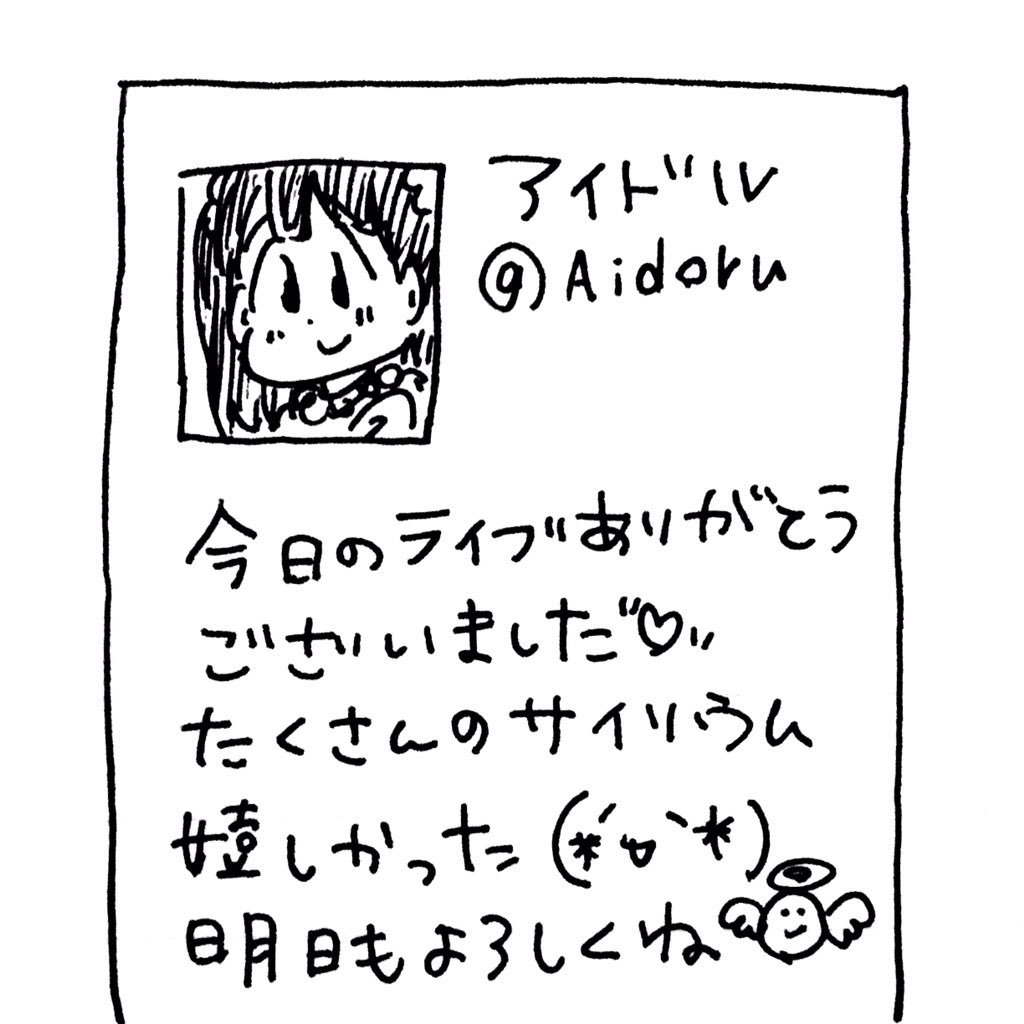 アイドル
@Aidoru
今日のライブありがとう
ございました゛♡〃
たくさんのサイリウム
嬉しかった(*´ω`*)
明日もよろしくね